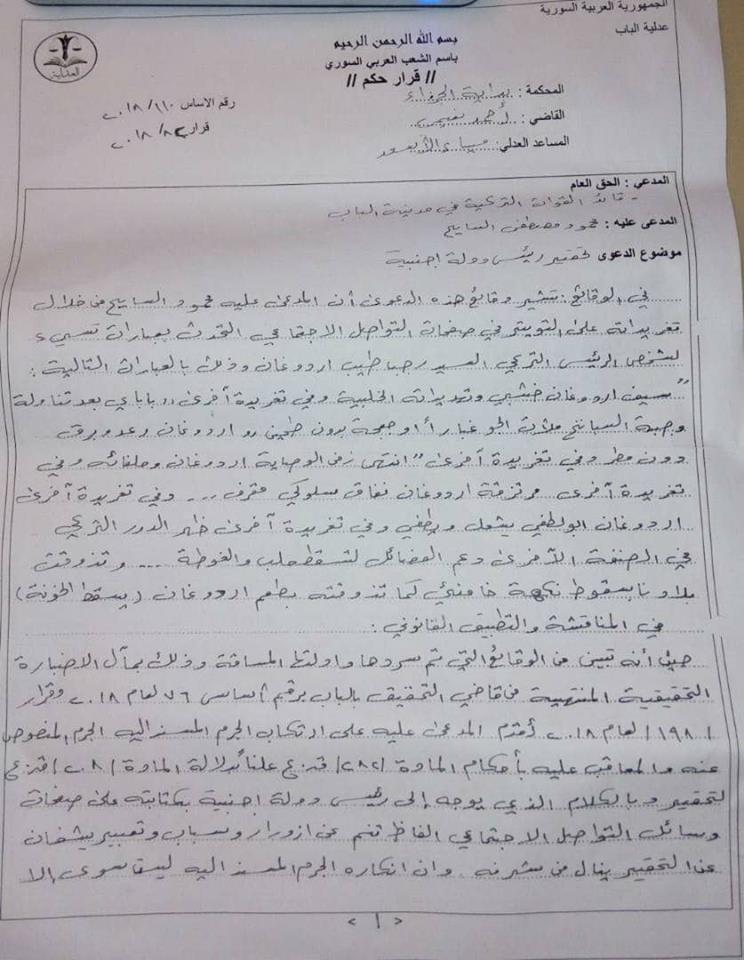 الجمهورية العربية السورية
عدلية الباب
بسم الله الرحمن الرحيم
باسم الشعب العربي السوري
// قرار حكم //
العدالة
المحكمة : بداية الجزاء
رقم الاساس ١١٠/ ٢٠١٨
القاضي : أحمد نعيمي
قرار ٨٤/ ٢٠١٨
المساعد العدلي: ميساء الأسعد
المدعي : الحق العام
- قائد القوات التركية في مدينة الباب
المدعى عليه : محمود مصطفى السايح
موضوع الدعوى تحقير رئيس دولة اجنبية
في الوقائع : تشير وقائع هذه الدعوى أن المدعى عليه محمود السايح من خلال
تغريداته على التويتر في صفحات التواصل الاجتماعي التحدث بعبارات تسيء
لشخص الرئيس التركي السيد رجب طيب اردوغان وذلك بالعبارات التالية :
" سيف اردوغان خشبي وتهديداته الخلبية وفي تغريدة أخرى ,, باباي بعد تناوله
وجبة السبانخ ملأت الجو غباراً أو جعجعة بدون طحين ,, اردوغان رعد وبرق
دون مطر وفي تغريدة أخرى " انتهى زمن الوصاية اردوغان وحلفائه وفي
تغريدة أخرى مرتزقة اردوغان نفاق سلوكي مقرف ... وفي تغريدة أخرى
اردوغان ابو لطفي يشعل ويطفي وفي تغريدة أخرى ظهر الدور التركي
في الصفقة الآخرى دعم الفصائل لتسقط حلب والغوطة .... وتذوقت
بلادنا بسقوط نكهة خامنئي كما تذوقته بطعم اردوغان ( يسقط الخونة )
في المناقشة والتطبيق القانوني :
حيث أنه تبين من الوقائع التي تم سردها وادلتها المساقة وذلك بمآل الاضبارة
التحقيقية المنتهية من قاضي التحقيق بالباب برقم أساسي ٧٦ لعام ٢٠١٨ وقرار
/١٩٨/ لعام ٢٠١٨ أقدم المدعى عليه على ارتكاب الجرم المسند اليه الجرم المنصوص
عنه والمعاقب عليه بأحكام المادة /٢٨٢/ ق.ع علناً بدلالة المادة /٢٠٨/ ق.ع
لتحقير وبالكلام الذي يوجه إلى رئيس دولة اجنبية بكتابته على صفحات
وسائل التواصل الاجتماعي الفاظ تنم عن ازورار وسباب وتعبير يشفان
عن التحقير ينال من شرفه . وان انكاره الجرم المسند اليه ليست سوى الا
< ١ >